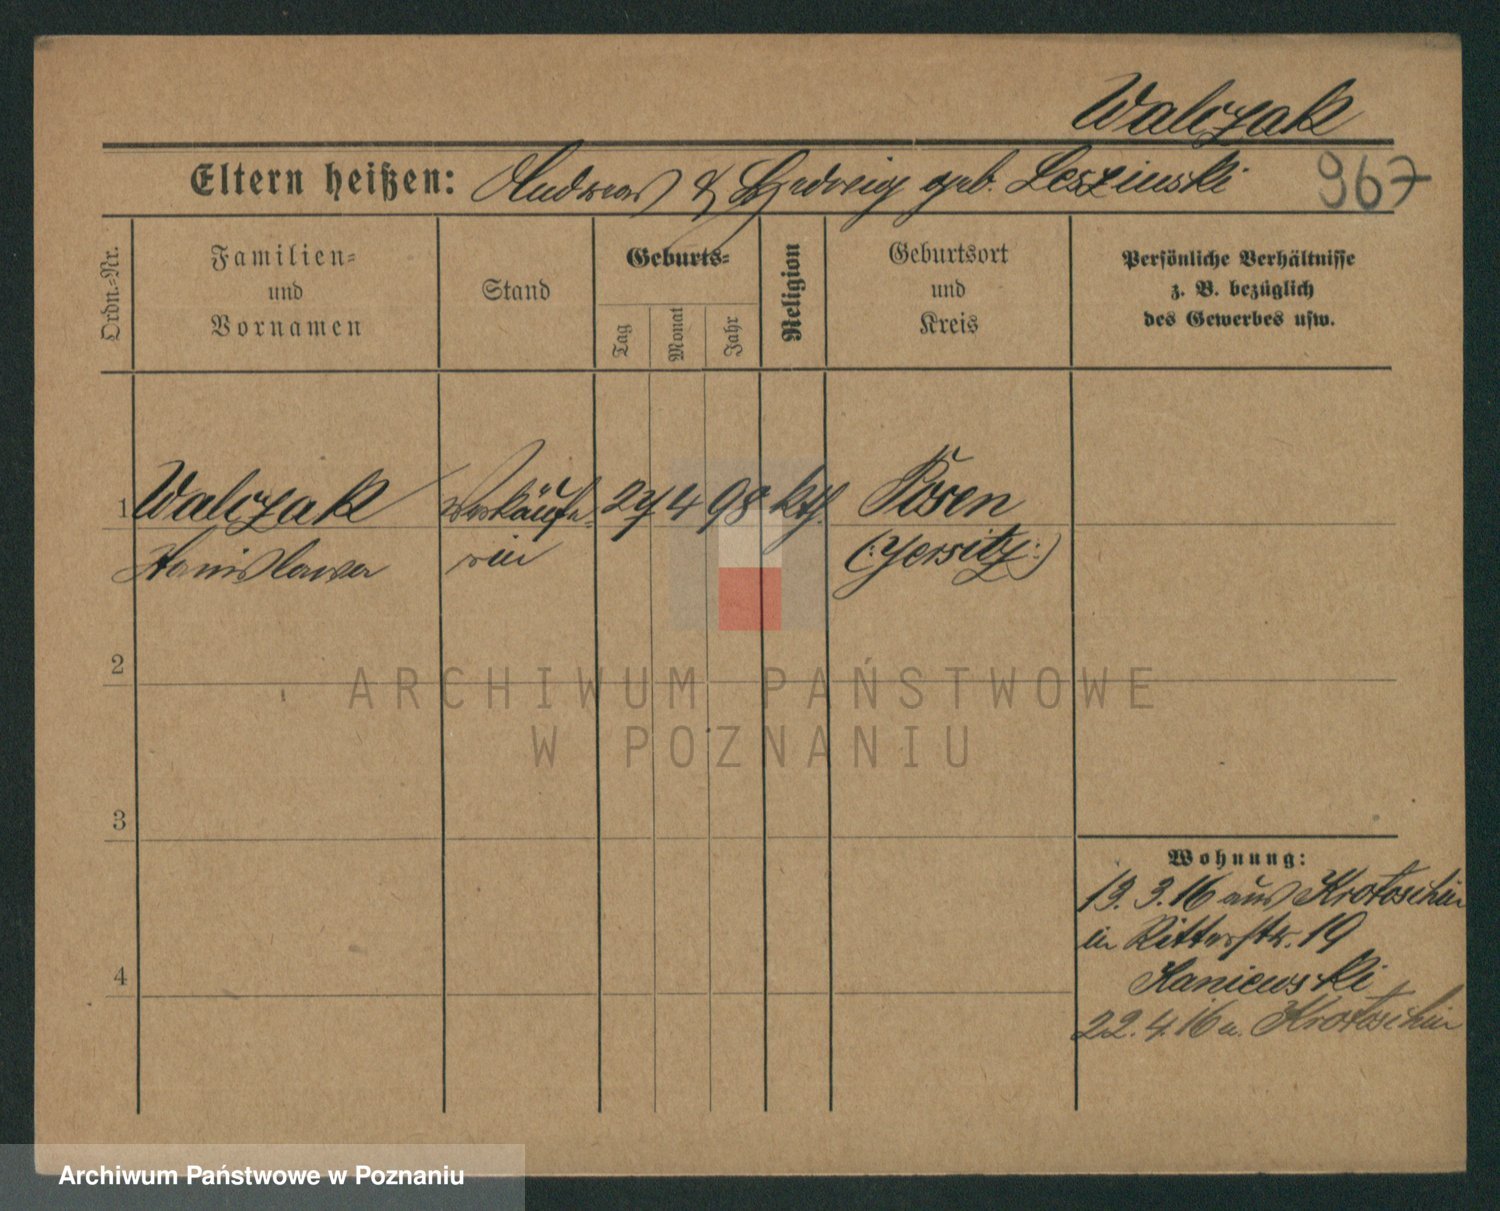 Walczak
Eltern heißen: Andreas & Hedwig geb. Leszinski 967
Ordn.-Nr.
Familien-
und
Vornamen
Stand
Geburts-
Tag
Monat
Jahr
Religion
Geburtsort
und
Kreis
Persönliche Verhältnisse
z. B. bezüglich
des Gewerbes usw.
1 Walczak Verkäufe- 27 4 98 kth. Posen
Stanislawa rin (:Jersitz:)
2
ARCHIWUM PAŃSTWOWE
W POZNANIU
3
Wohnung:
13. 3. 16 aus Krotoschin
in Ritterstr. 19
Kaniewski
4
22. 4. 16 n. Krotoschin
Archiwum Państwowe w Poznaniu